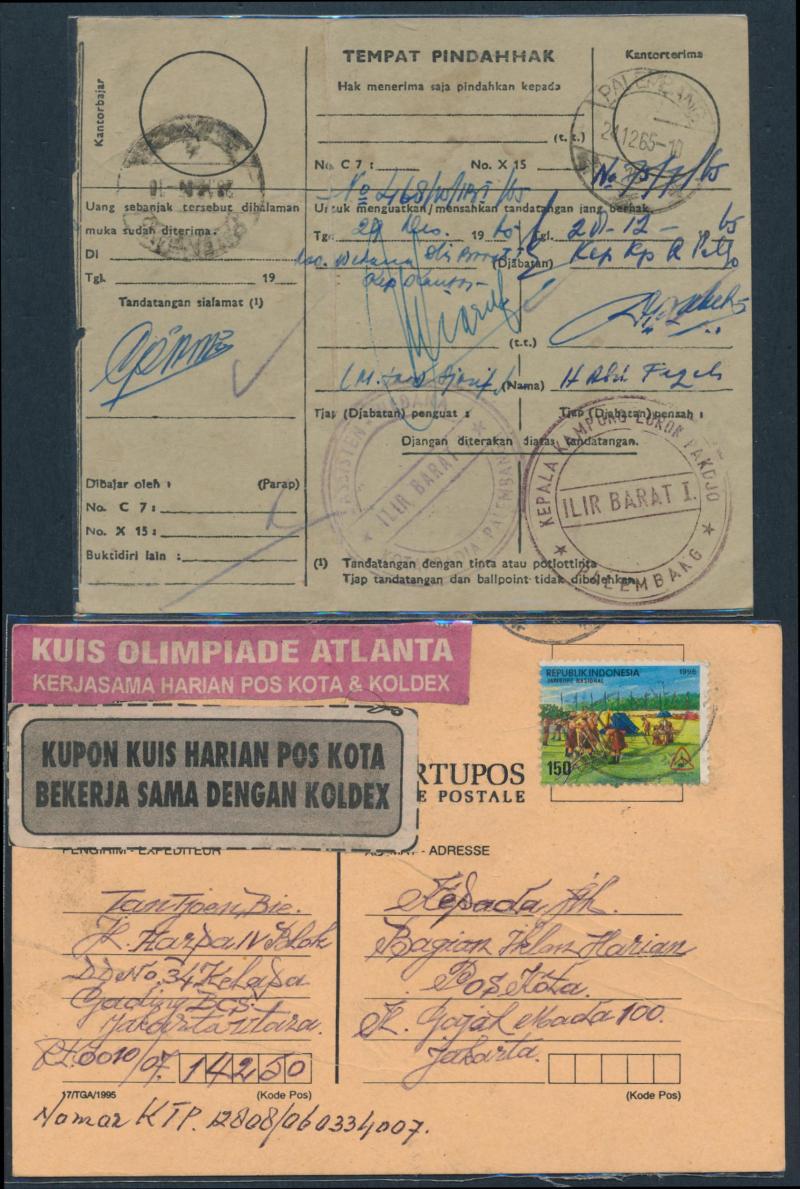 Kantorbajar
Uang sebanjak tersebut dihalaman
muka sudah diterima.
DI
Tgl. 19
Tandatangan sialamat (1)
Dibajar oleh : (Parap)
No. C 7 :
No. X 15 :
Buktidiri lain :
TEMPAT PINDAHHAK
Hak menerima saja pindahkan kepada
(t. t.)
No. C 7 : No. X 15
No 468/
Untuk menguatkan/mensahkan tandatangan jang berhak.
Tgl. 29 Des. 19 65 Tgl. 20-12- 65
(Djabatan) Kep Kp
(t.t.)
(Nama) H Abd
Tjap (Djabatan) penguat : Tjap (Djabatan) pensah :
Djangan diterakan diatas tandatangan.
(1) Tandatangan dengan tinta atau potlottinta
Tjap tandatangan dan ballpoint tidak dibolehkan.
Kantorterima
PALEMBANG
24.12.65-10
ASSISTEN WEDANA
ILIR BARAT I
PALEMBANG
KEPALA KAMPUNG LOROK PAKDJO
ILIR BARAT I.
PALEMBANG
KUIS OLIMPIADE ATLANTA
KERJASAMA HARIAN POS KOTA & KOLDEX
KUPON KUIS HARIAN POS KOTA
BEKERJA SAMA DENGAN KOLDEX
RTUPOS
E POSTALE
REPUBLIK INDONESIA 1996
JAMBORE NASIONAL
150
PENGIRIM - EXPEDITEUR
Tan Tjoen Bie.
Jl. Harpa IV Blok
DD No. 34 Kelapa
Gading BCS
Jakarta Utara.
RT.0010/07. 14250
17/TGA/1995 (Kode Pos)
Nomar KTP. 12808/060334007.
- ADRESSE
Kepada Yth.
Bagian Iklan Harian
Pos Kota.
Jl. Gajah Mada 100.
Jakarta.
(Kode Pos)